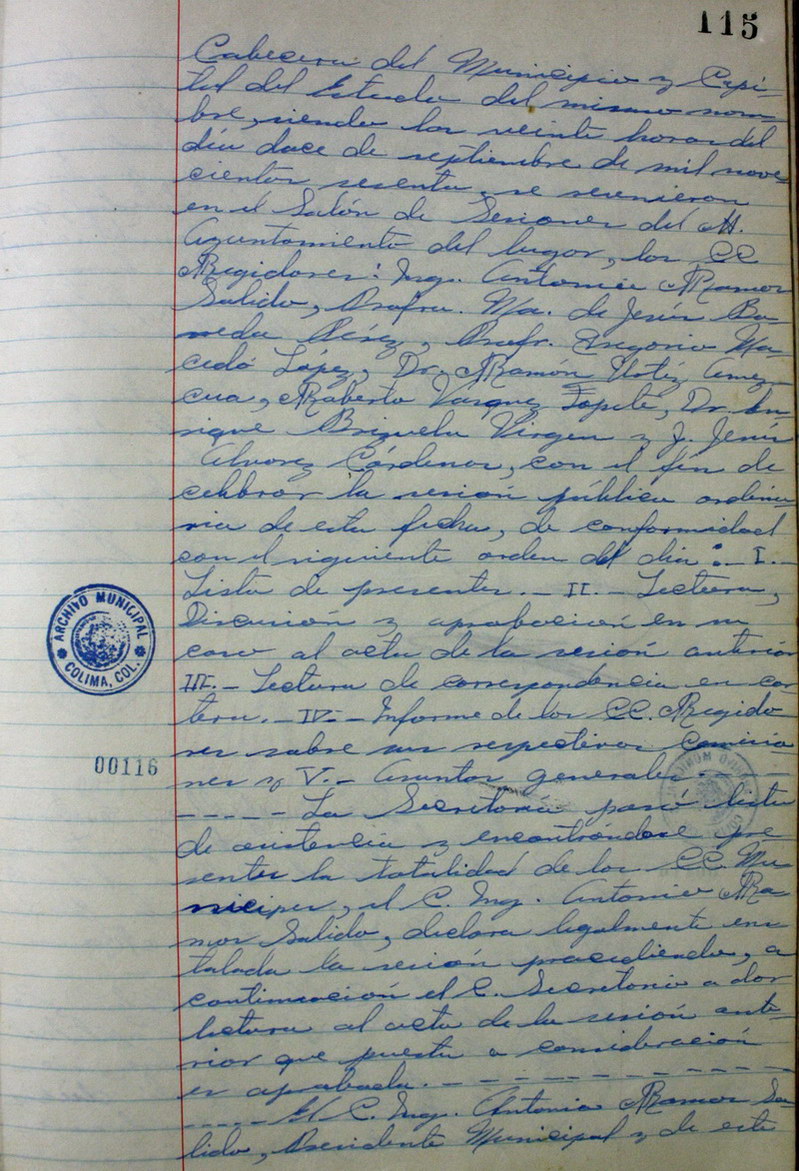 115
Cabecera del Municipio y Capi-
tal del Estado del mismo nom-
bre, siendo las veinte horas del
día doce de septiembre de mil nove-
cientos sesenta, se reunieron
en el Salón de Sesiones del H.
Ayuntamiento del lugar, los CC
Regidores: Ing. Antonio Ramos
Salido, Profra. Ma. de Jesús Ba-
neda Pérez, Profr. Gregorio Ma-
cedo López, Dr. Ramón Ortiz Amez-
cua, Roberto Vazquez Topete, Dr. En
rique Brizuela Virgen y J. Jesús
Alvarez Cárdenas, con el fin de
celebrar la sesión pública ordina-
ria de esta fecha, de conformidad
con el siguiente orden del día:- I.-
Lista de presentes.- II.- Lectura,
Discusión y aprobación en su
caso al acta de la sesión anterior
III.- Lectura de correspondencia en car
tera.- IV.- Informe de los CC. Regido
res sobre sus respectivas Comisio
nes y V.- Asuntos generales.-
---- La Secretaría pasó lista
de asistencia y encontrándose pre
sentes la totalidad de los CC. Mu
nicipes, el C. Ing. Antonio Ra
mos Salido, declara legalmente ins
talada la sesión procediendo, a
continuación el C. Secretario a dar
lectura al acta de la sesión ante-
rior que puesta a consideración
es aprobada.- - - - - - - - - - -
---- El C. Ing. Antonio Ramos Sa-
lido, Presidente Municipal y de este
ARCHIVO MUNICIPAL
COLIMA, COL.
00116